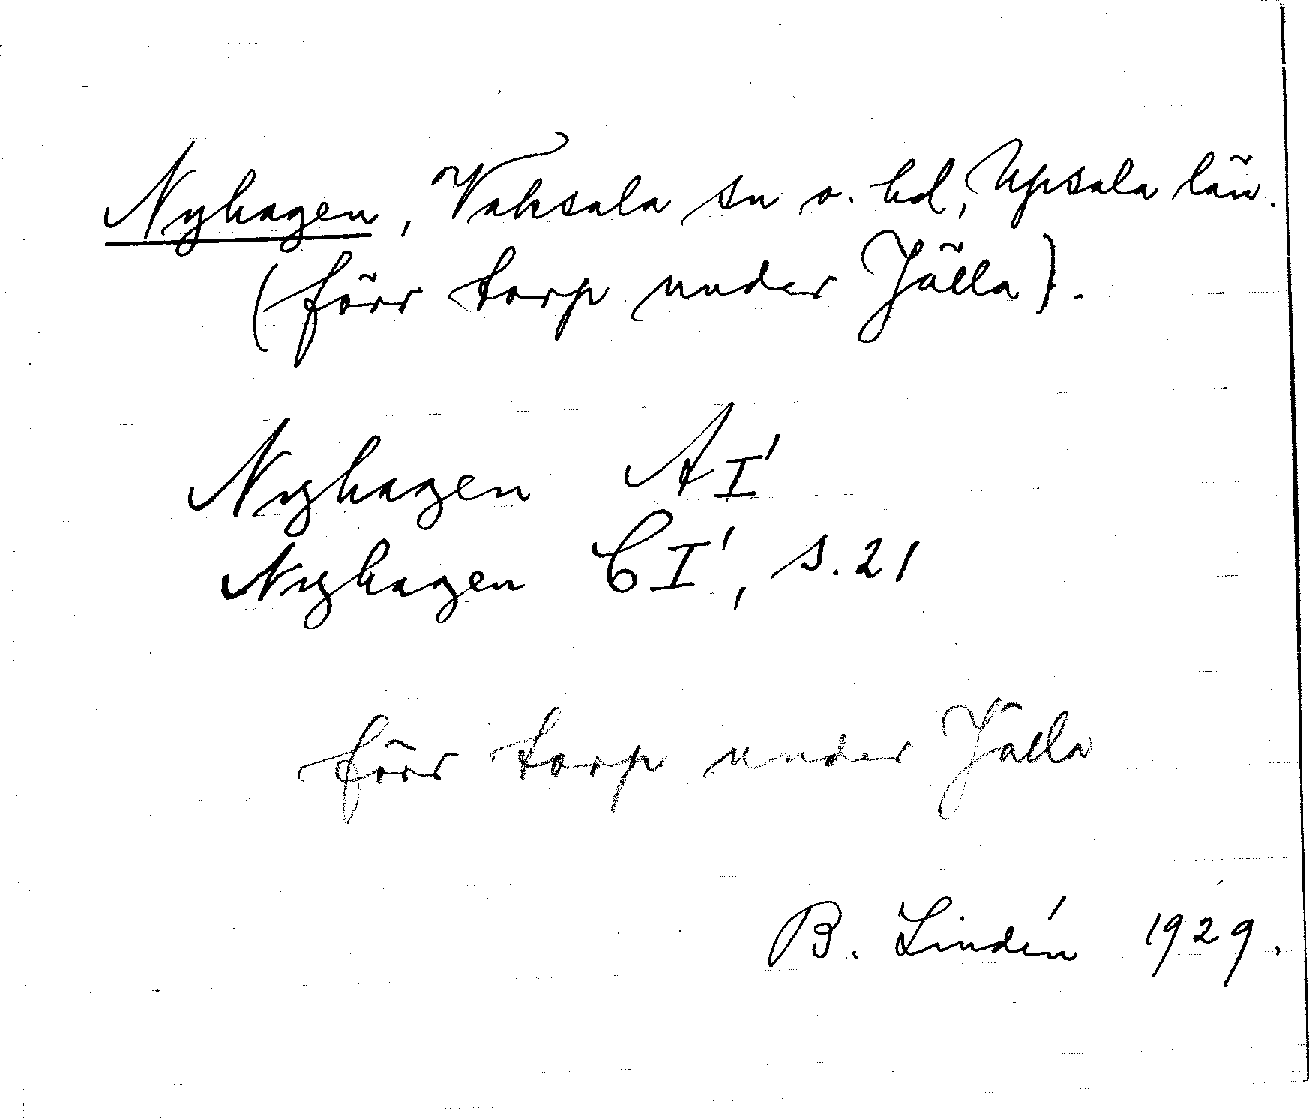 Nyhagen, Vaksala sn o. hd, Upsala län.
(förr torp under Jälla).
Nyhagen AI'
Nyhagen CI', s. 21
förr torp under Jälla
B. Lindén 1929.